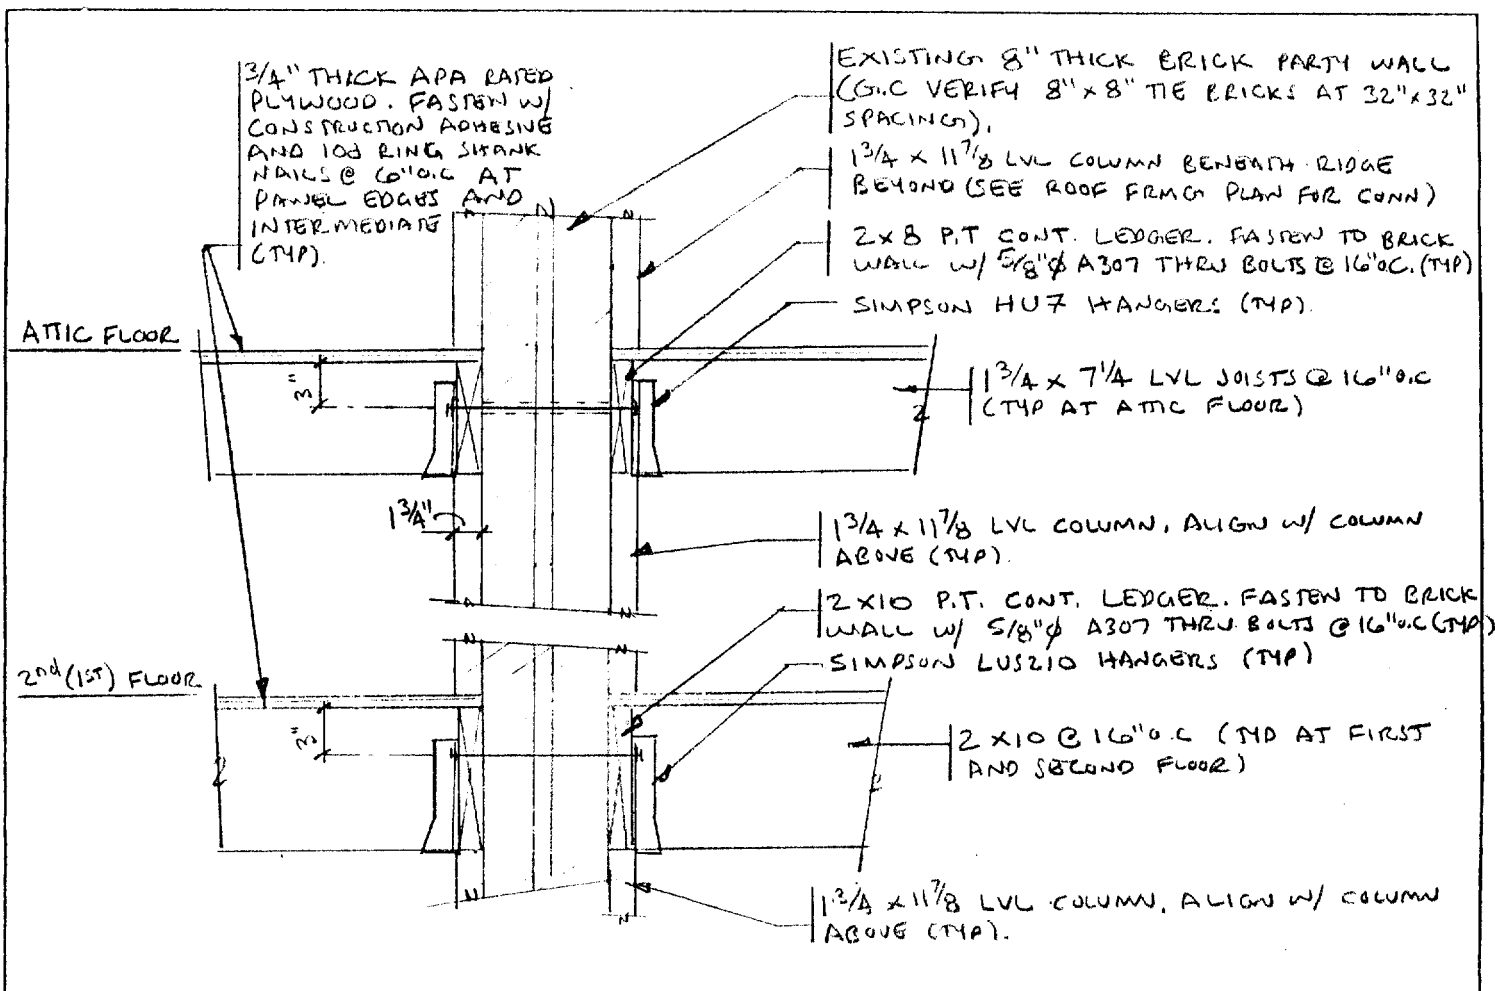 3/4" THICK APA RATED
PLYWOOD. FASTEN W/
CONSTRUCTION ADHESIVE
AND 10d RING SHANK
NAILS @ 6" O.C AT
PANEL EDGES AND
INTERMEDIATE
(TYP).
EXISTING 8" THICK BRICK PARTY WALL
(G.C VERIFY 8" x 8" TIE BRICKS AT 32" x 32"
SPACING).
1 3/4 x 11 7/8 LVL COLUMN BENEATH RIDGE
BEYOND (SEE ROOF FRMG PLAN FOR CONN)
2 x 8 P.T CONT. LEDGER. FASTEN TO BRICK
WALL W/ 5/8"Ø A307 THRU BOLTS @ 16" O.C. (TYP)
SIMPSON HU7 HANGERS (TYP).
ATTIC FLOOR
3"
1 3/4 x 7 1/4 LVL JOISTS @ 16" O.C
(TYP AT ATTIC FLOOR)
1 3/4"
1 3/4 x 11 7/8 LVL COLUMN, ALIGN W/ COLUMN
ABOVE (TYP).
2 x 10 P.T. CONT. LEDGER. FASTEN TO BRICK
WALL W/ 5/8"Ø A307 THRU BOLTS @ 16" O.C (TYP)
SIMPSON LUS210 HANGERS (TYP)
2nd (1ST) FLOOR
3"
2 x 10 @ 16" O.C (TYP AT FIRST
AND SECOND FLOOR)
1 3/4 x 11 7/8 LVL COLUMN, ALIGN W/ COLUMN
ABOVE (TYP).